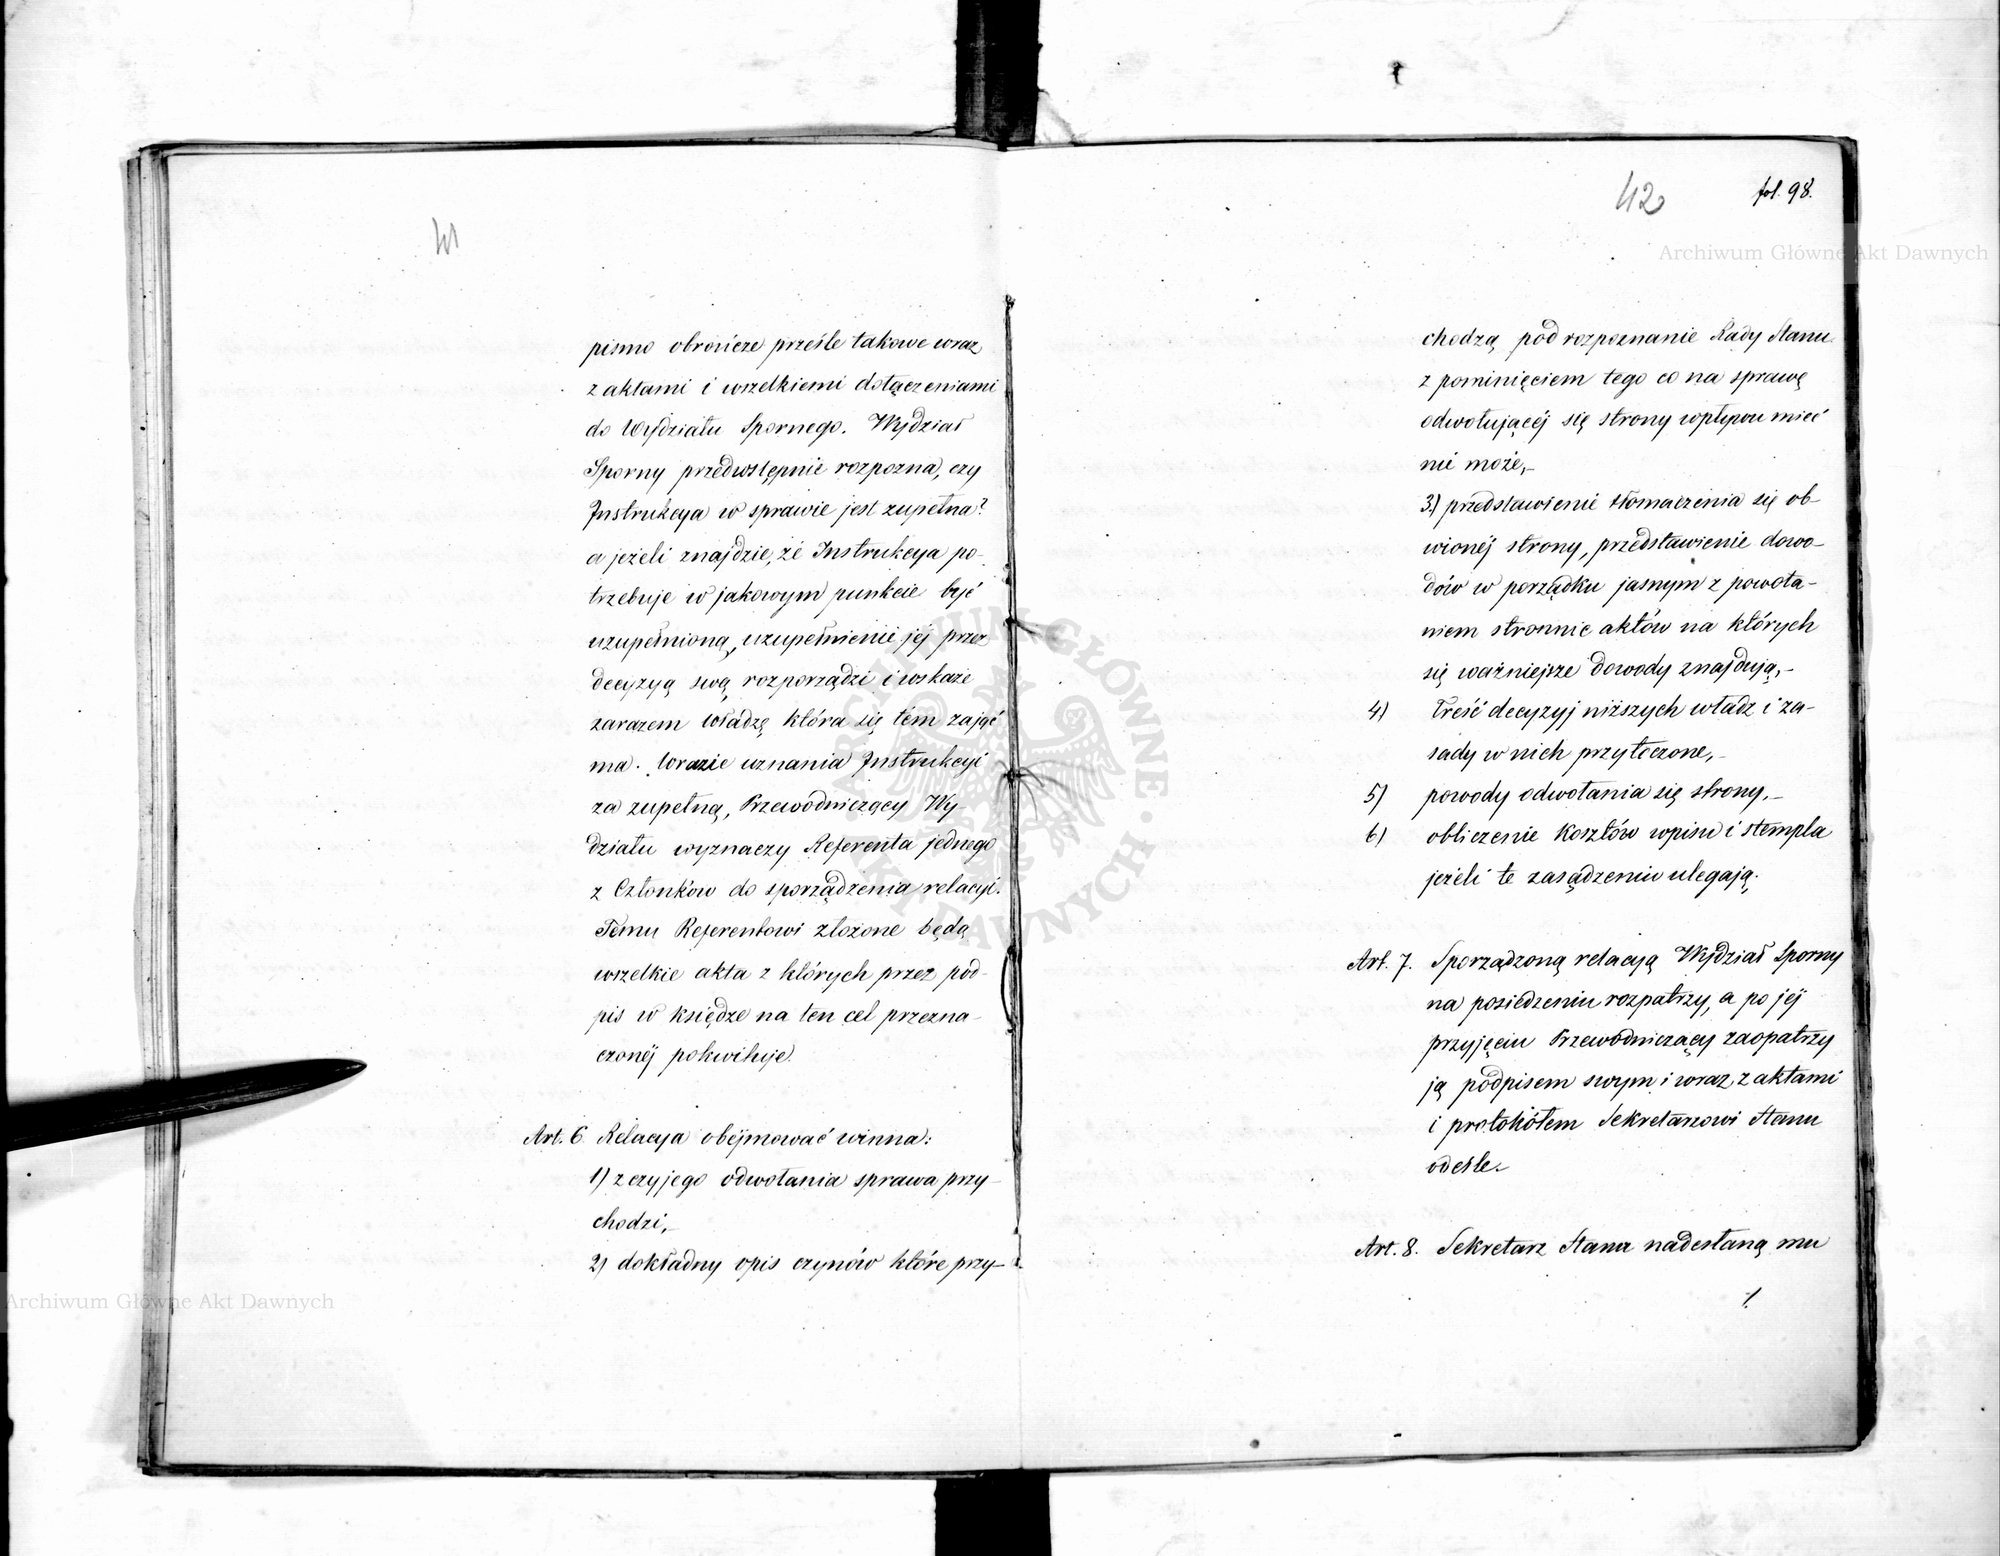 41
pismo obrończe prześle takowe wraz
z aktami i wszelkiemi dołączeniami
do Wydziału Spornego. Wydział
Sporny przedwstępnie rozpozna, czy
Instrukcya w sprawie jest zupełna?
a jeżeli znajdzie, że Instrukcya po-
trzebuje w jakowym punkcie być
uzupełnioną, uzupełnienie jéj przez
decyzyą swą rozporządzi i wskaże
zarazem władzę która się tém zająć
ma. Wrazie uznania Instrukcyi
za zupełną, Przewodniczący Wy-
działu wyznaczy Referenta jednego
z Członków do sporządzenia relacyi.
Temu Referentowi złożone będą
wszelkie akta z których przez pod-
pis w księdze na ten cel przezna-
czonéj pokwituje.
Art. 6 Relacya obéjmować winna:
1) z czyjego odwołania sprawa przy-
chodzi,-
2) dokładny opis czynów które przy-
42 fol. 98.
chodzą pod rozpoznanie Rady Stanu
z pominięciem tego co na sprawę
odwołującéj się strony wpływu mieć
nie może,-
3) przedstawienie tłomaczenia się ob-
wionéj strony, przedstawienie dowo-
dów w porządku jasnym z powoła-
niem stronnic aktów na których
się ważniejsze dowody znajdują,-
4) treść decyzyj niższych władz i za-
sady w nich przytoczone,-
5) powody odwołania się strony,-
6) obliczenie kosztów wpisu i stempla
jeżeli te zasądzeniu ulegają.
Art. 7. Sporządzoną relacyą Wydział Sporny
na posiedzeniu rozpatrzy, a po jéj
przyjęciu Przewodniczący zaopatrzy
ją podpisem swym i wraz z aktami
i protokółem Sekretarzowi Stanu
odeśle.
Art. 8. Sekretarz Stanu nadesłaną mu
./.
Archiwum Główne Akt Dawnych
Archiwum Główne Akt Dawnych
ARCHIWUM GŁÓWNE AKT DAWNYCH